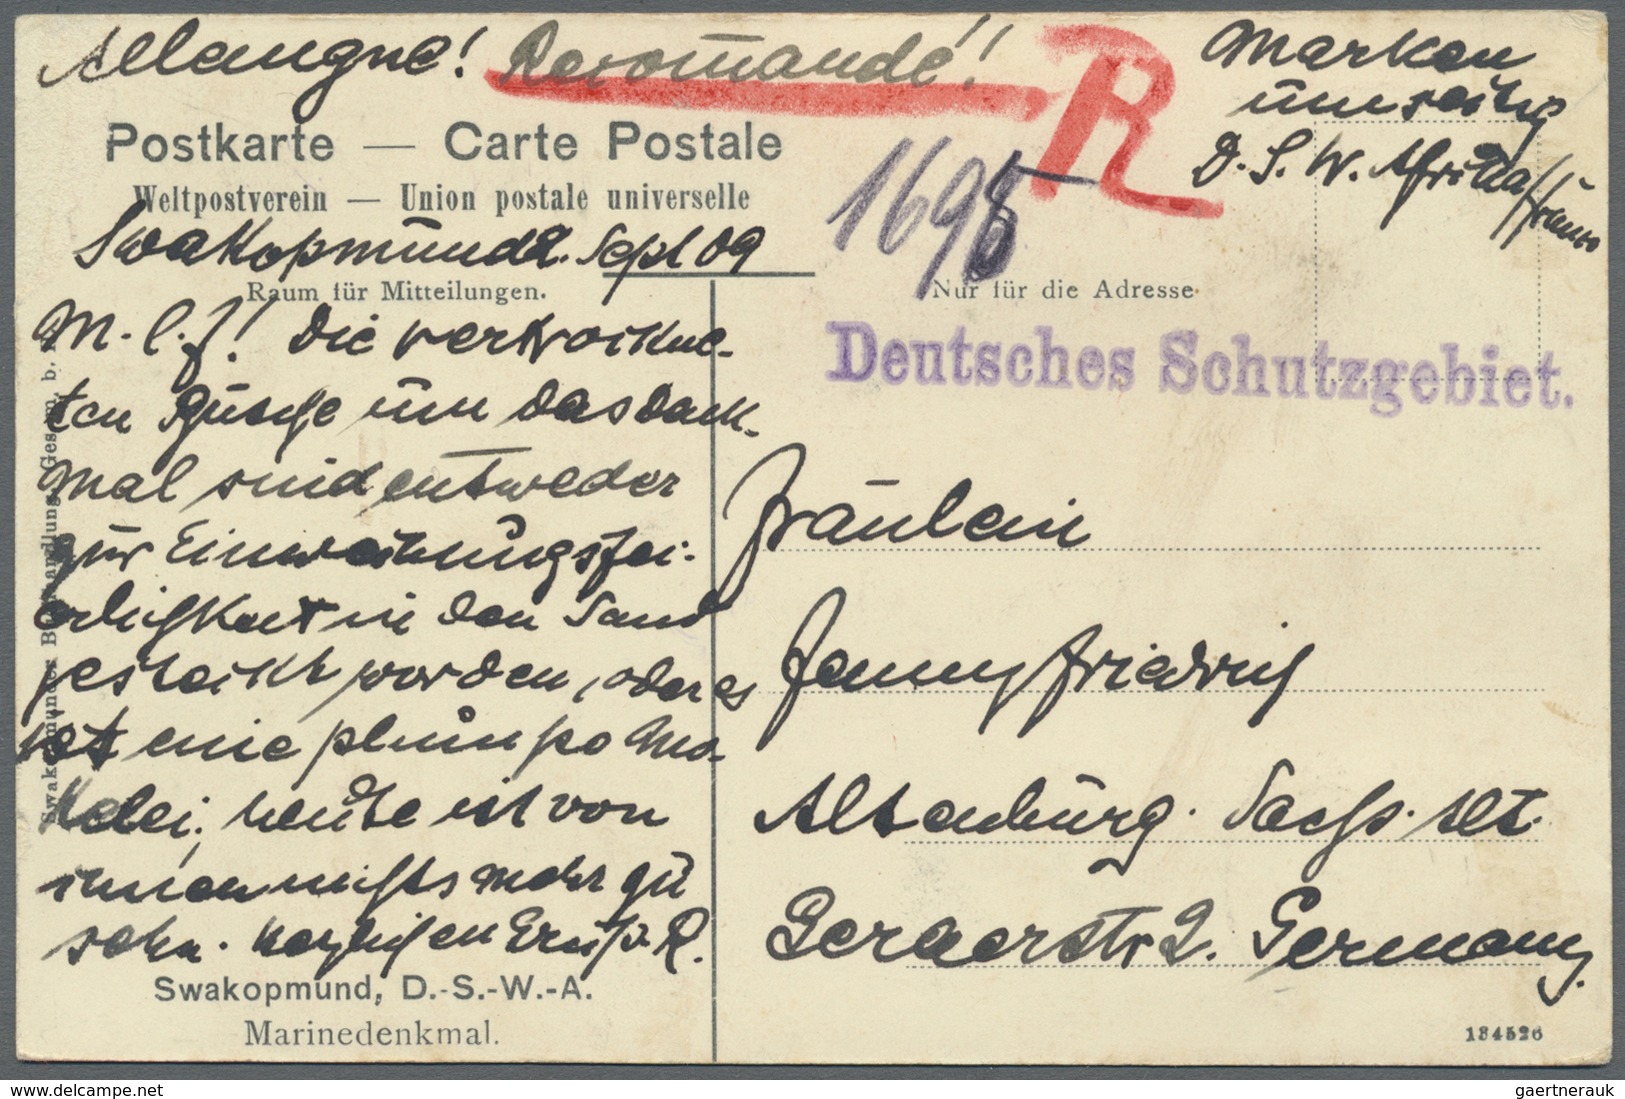 Allemagne! Recomande!! R
Marken
umseitig
D. S. W. Afrika
Postkarte — Carte Postale
Weltpostverein — Union postale universelle
169
Swakopmund 2. Sept 09
Raum für Mitteilungen.
Nur für die Adresse
Deutsches Schutzgebiet.
M. l. J! Die vertrockne-
ten Büsche um das Denk-
mal sind entweder
zur Einweihungsfei-
erlichkeit in den Sand
gesteckt worden, oder es
ist eine plumpe Ma-
lelei, heute ist von
ihnen nichts mehr zu
sehn. R.
Swakopmund, D.-S.-W.-A.
Marinedenkmal.
Fräulein
Jenny Friedrich
Altenburg. Sachs. Alt.
Geraerstr 2. Germany.
184526
delcampe.net
gaertnerauk